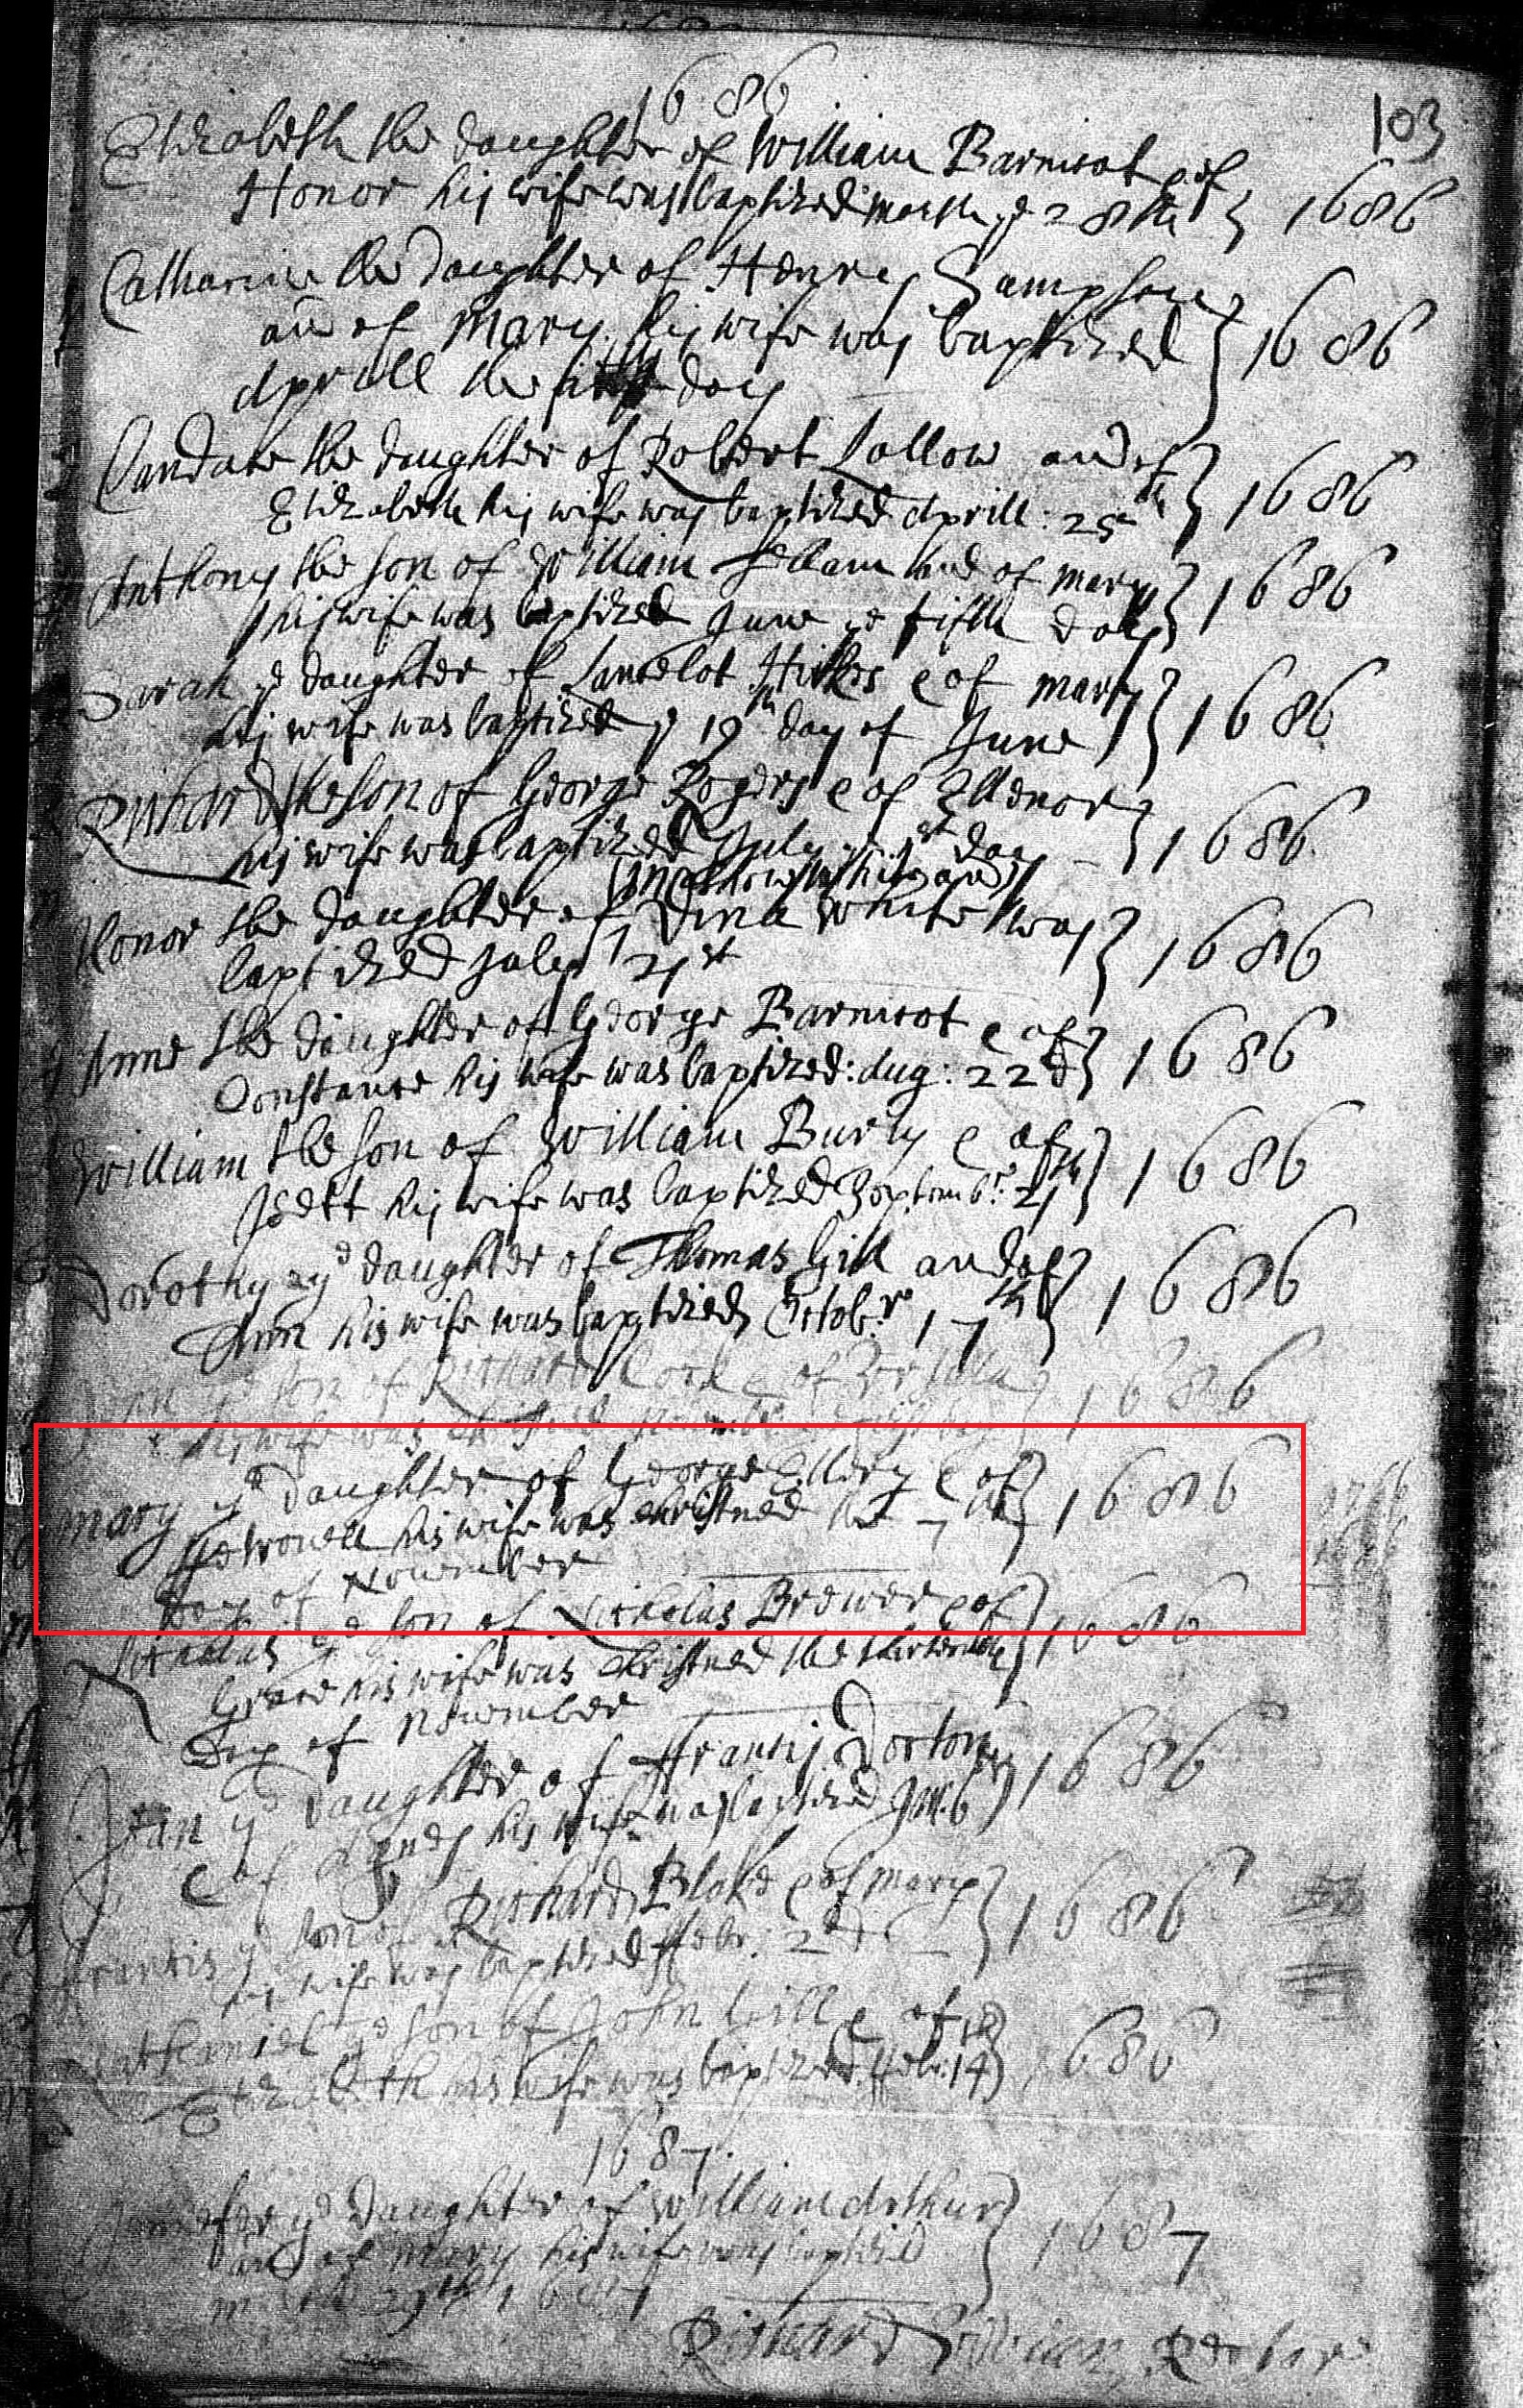 1686
103
Elizabeth the daughter of William Barnicot e of
Honor his wife was baptized March ye 28th } 1686
Catharine the Daughter of Henry Sampson
and of Mary his wife was baptized } 1686
Aprill the day
Candace the daughter of Robert Lallow and of
Elizabeth his wife was baptized Aprill: 25th } 1686
Anthony the son of William and of mary
his wife was baptized June ye fifth day } 1686
Sarah ye daughter of Lancelot Hickes e of mary
his wife was baptized ye 19th day of June } 1686
Richard the son of George Rogers e of Ellenor
his wife was baptized July 1st day } 1686
(Mathow White and)
Honor the daughter of Dina White was
baptized July 21st } 1686
Anne the daughter of George Barnicot e of
Constance his wife was baptized: Aug: 22d } 1686
William the son of William Burly e of
his wife was baptized Septembr: } 1686
Dorothy ye daughter of Thomas Gill and of
Ann his wife was baptized Octobr 17th } 1686
ye son of Richard Cock e of Ursula
his wife was } 1686
mary ye daughter of George Ellery e of
Petronell his wife was christned the 7th } 1686
Day of November
Nicholas ye son of Nicholas Brewer e of
Grace his wife was christned the thirteenth } 1686
Day of November
Jean ye Daughter of Francis Dorton
e of his wife was baptized Jan. 6 } 1686
Francis ye son of Richard Blake e of Mary
his wife was baptized ffebr: 2d } 1686
Nathaniel ye son of John Gill e of
Elizabeth his wife was baptized ffeb: 14 } 1686
1687.
ye Daughter of William Arthur
and of mary his wife was baptized } 1687
March 29th 1687
Richard Rector